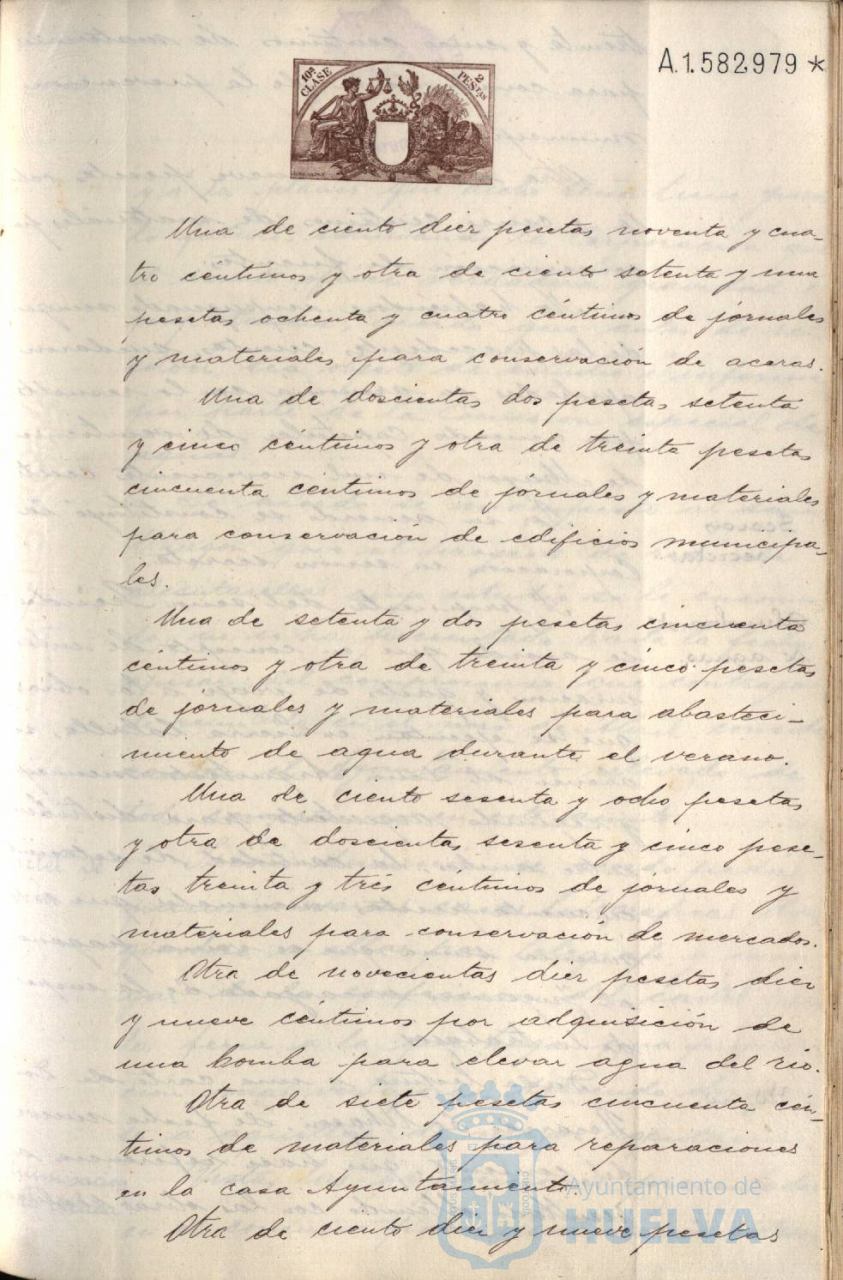 A.1.582979 *
10ª CLASE
2 PESTAS
Una de ciento diez pesetas noventa y cua-
tro céntimos y otra de ciento setenta y una
pesetas ochenta y cuatro céntimos de jornales
y materiales para conservación de aceras.
Una de doscientas dos pesetas setenta
y cinco céntimos y otra de treinta pesetas
cincuenta céntimos de jornales y materiales
para conservación de edificios municipa-
les.
Una de setenta y dos pesetas cincuenta
céntimos y otra de treinta y cinco pesetas
de jornales y materiales para abasteci-
miento de agua durante el verano.
Una de ciento sesenta y ocho pesetas
y otra de doscientas sesenta y cinco pese-
tas treinta y tres céntimos de jornales y
materiales para conservación de mercados.
Otra de novecientas diez pesetas diez
y nueve céntimos por adquisición de
una bomba para elevar agua del rio.
Otra de siete pesetas cincuenta cén-
timos de materiales para reparaciones
en la casa Ayuntamiento.
Otra de ciento diez y nueve pesetas
Ayuntamiento de
HUELVA